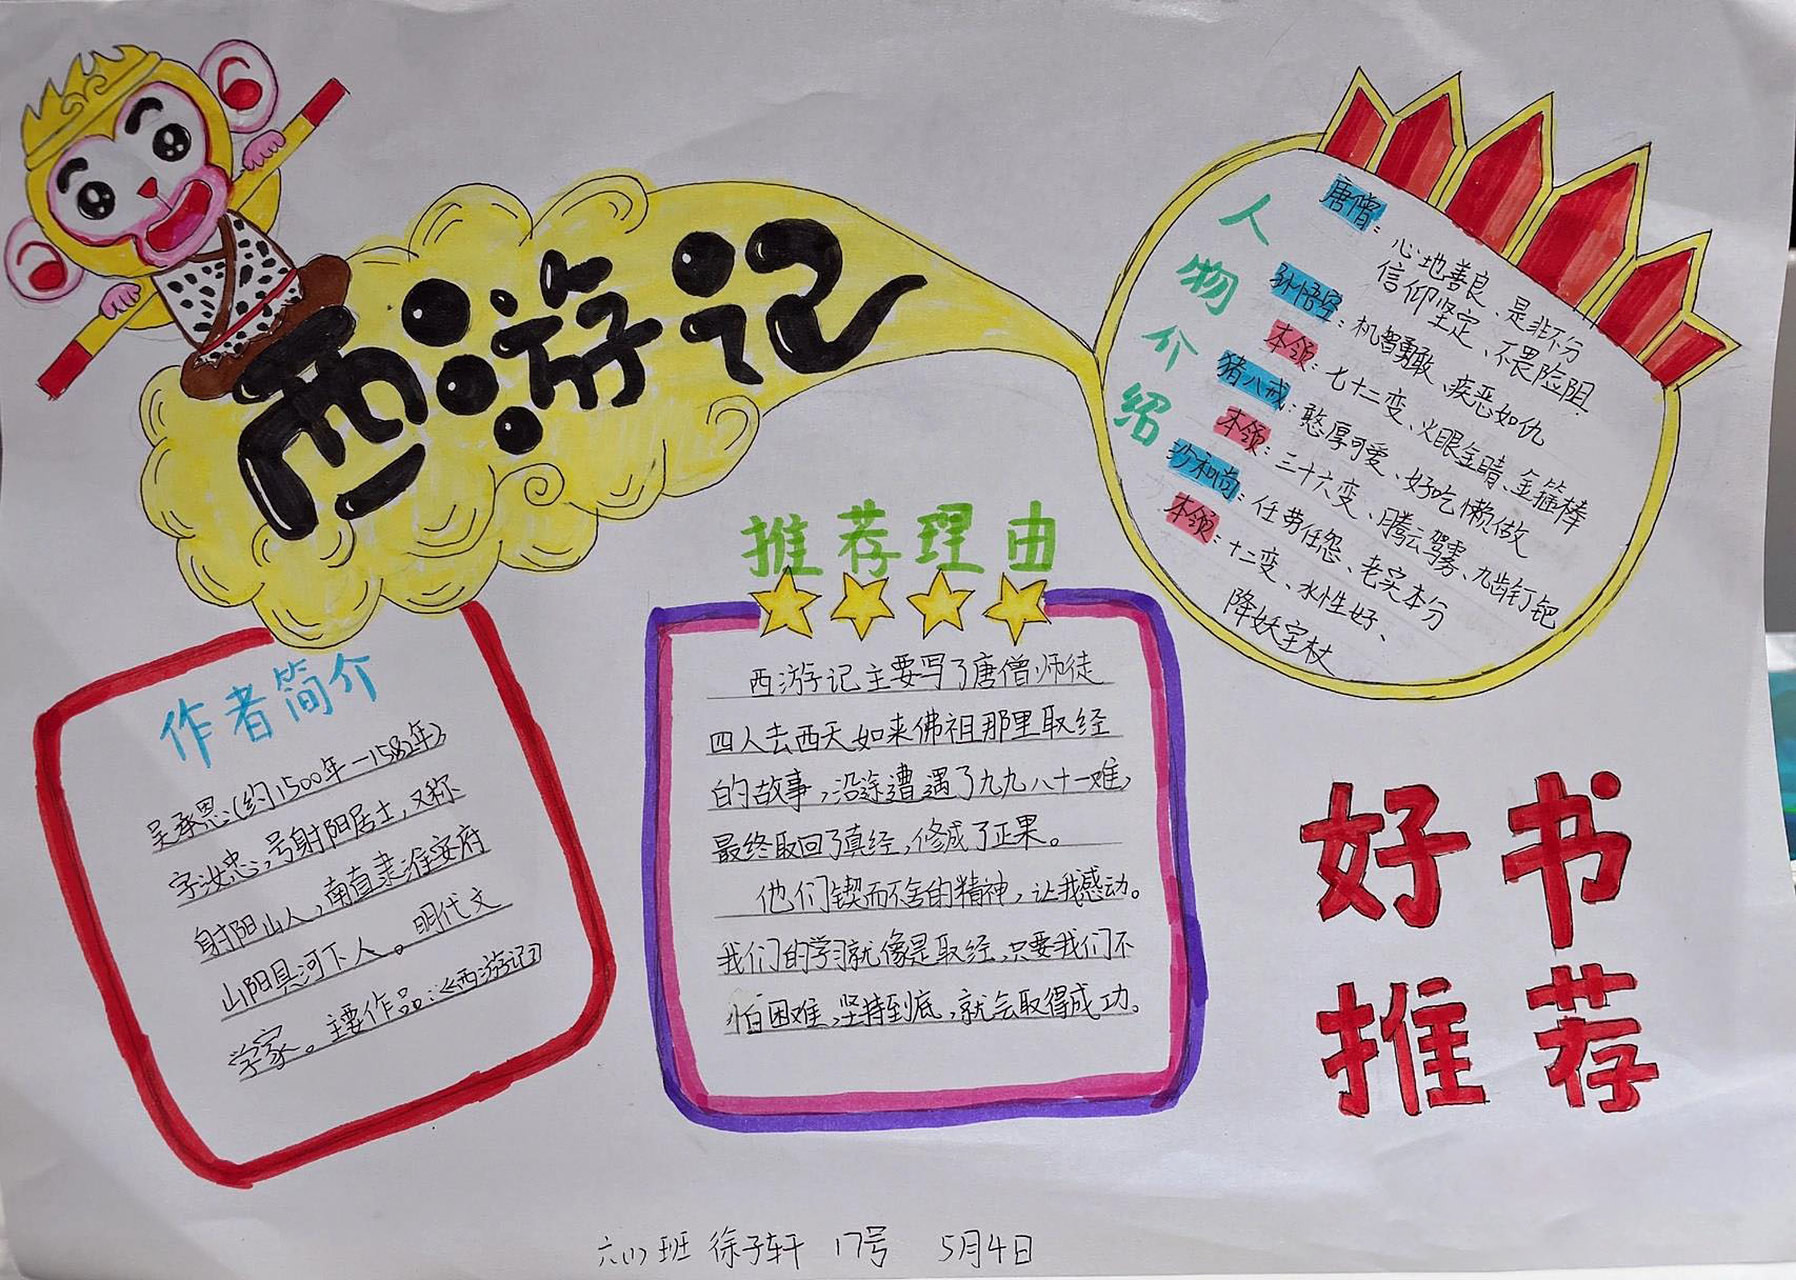 西游记
人物介绍
唐僧：心地善良、是非不分
信仰坚定、不畏险阻.
孙悟空：机智勇敢、疾恶如仇
本领：七十二变、火眼金睛、金箍棒
猪八戒：憨厚可爱、好吃懒做
本领：三十六变、腾云驾雾、九齿钉钯
沙和尚：任劳任怨、老实本分
本领：十二变、水性好、
降妖宝杖
推荐理由
西游记主要写了唐僧师徒
四人去西天如来佛祖那里取经
的故事，沿途遭遇了九九八十一难，
最终取回了真经，修成了正果。
他们锲而不舍的精神，让我感动。
我们的学习就像是取经，只要我们不
怕困难，坚持到底，就会取得成功。
作者简介
吴承恩（约1500年—1582年）
字汝忠，号射阳居士，又称
射阳山人，南直隶淮安府
山阳县河下人。明代文
学家。主要作品：《西游记》
好书
推荐
六(1)班 徐子轩 17号 5月4日